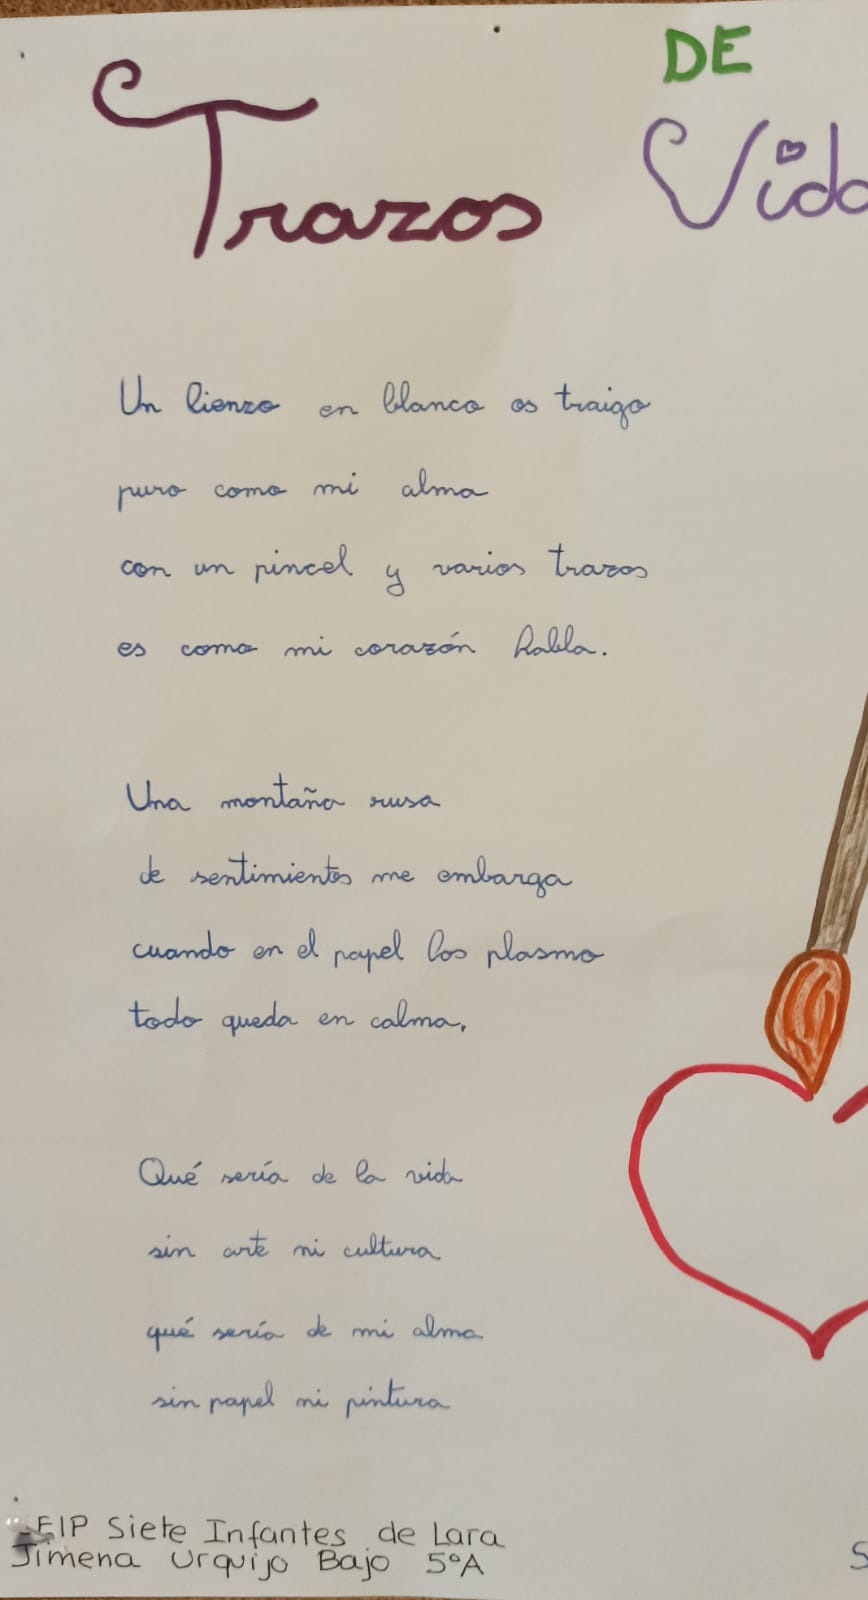 Trazos DE Vida
Un lienzo en blanco os traigo
puro como mi alma
con un pincel y varios trazos
es como mi corazón habla.
Una montaña rusa
de sentimientos me embarga
cuando en el papel los plasmo
todo queda en calma.
Qué sería de la vida
sin arte ni cultura
qué sería de mi alma
sin papel ni pintura
EIP Siete Infantes de Lara
Jimena Urquijo Bajo 5ºA